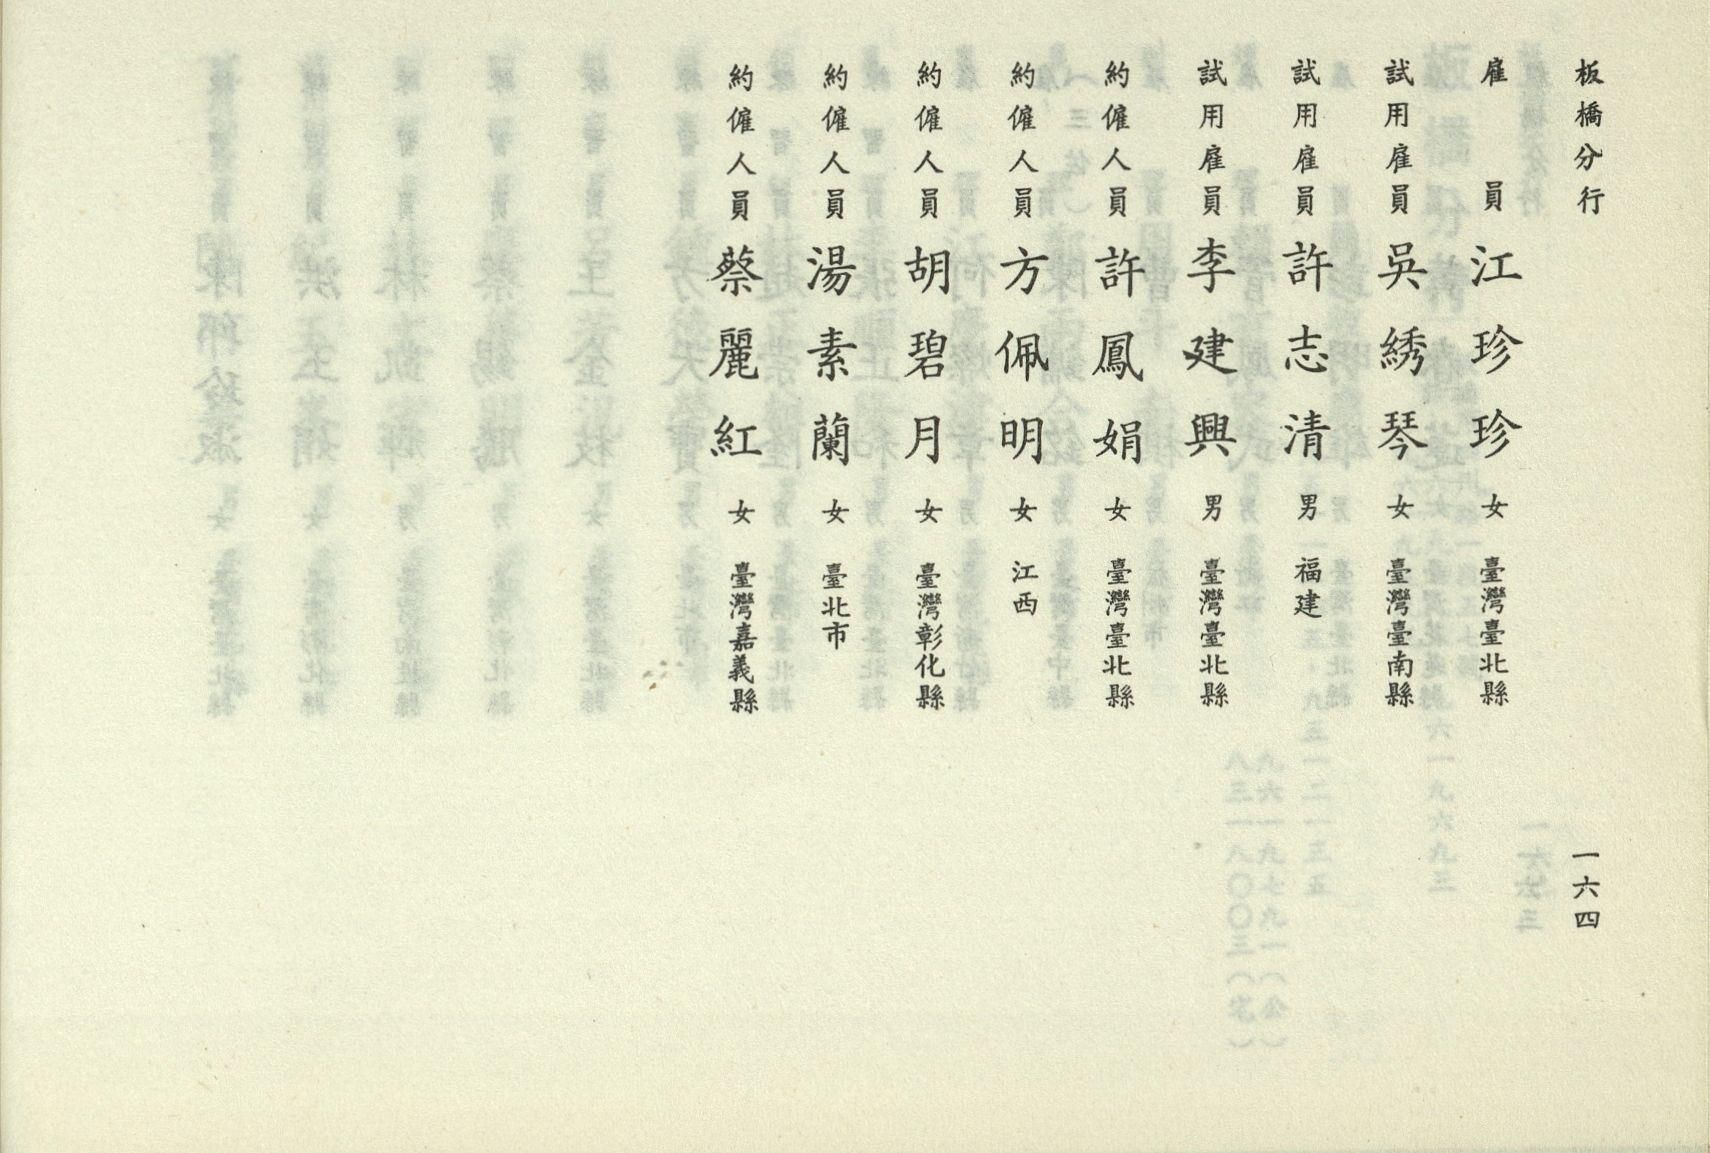 板橋分行 一六四
雇員 江珍珍 女 臺灣臺北縣
試用雇員 吳綉琴 女 臺灣臺南縣
試用雇員 許志清 男 福建
試用雇員 李建興 男 臺灣臺北縣
約僱人員 許鳳娟 女 臺灣臺北縣
約僱人員 方佩明 女 江西
約僱人員 胡碧月 女 臺灣彰化縣
約僱人員 湯素蘭 女 臺北市
約僱人員 蔡麗紅 女 臺灣嘉義縣